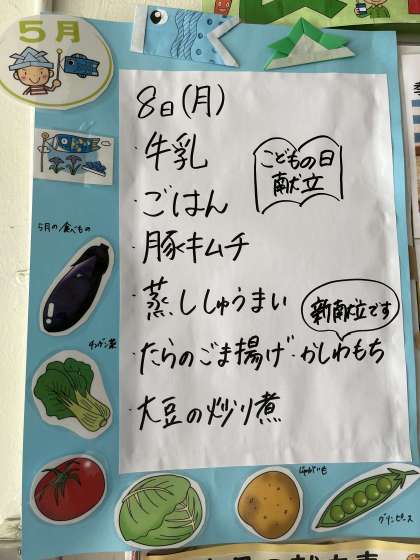 5月
8日(月)
・牛乳
こどもの日
献立
・ごはん
・豚キムチ
5月の食べもの
・蒸ししゅうまい
新献立です
・たらのごま揚げ・かしわもち
チンゲン菜
・大豆の炒り煮
じゃがいも
グリンピース